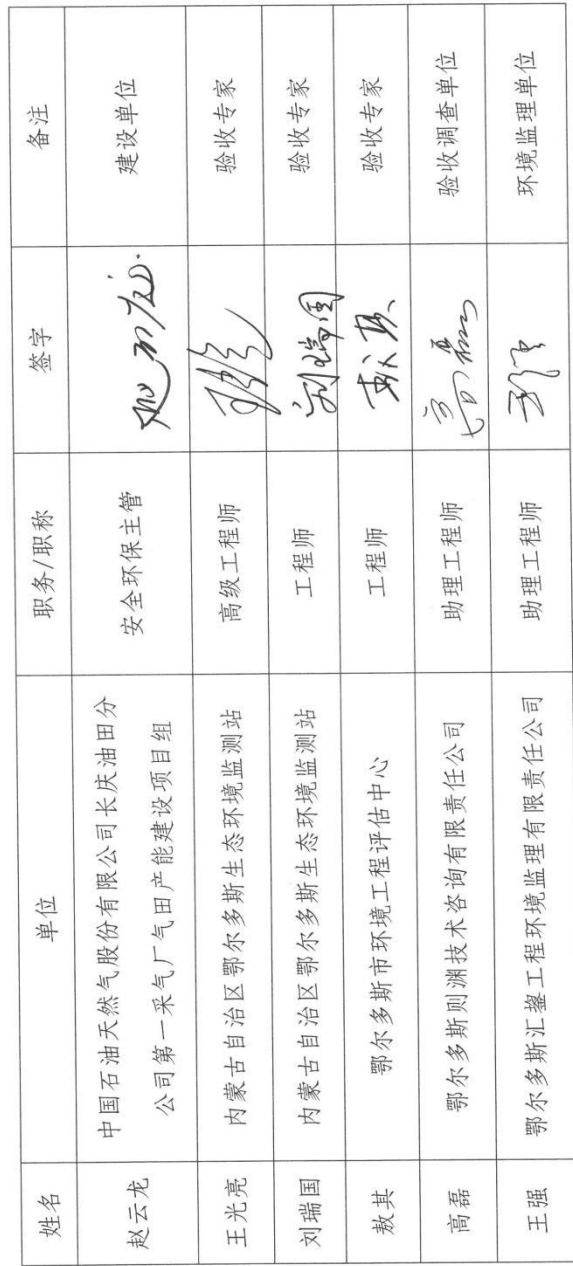 姓名 单位 职务/职称 签字 备注
赵云龙 中国石油天然气股份有限公司长庆油田分 安全环保主管 赵云龙 建设单位
公司第一采气厂气田产能建设项目组
王光亮 内蒙古自治区鄂尔多斯生态环境监测站 高级工程师 验收专家
刘瑞国 内蒙古自治区鄂尔多斯生态环境监测站 工程师 刘瑞国 验收专家
敖其 鄂尔多斯市环境工程评估中心 工程师 敖其 验收专家
高磊 鄂尔多斯则渊技术咨询有限责任公司 助理工程师 高磊 验收调查单位
王强 鄂尔多斯汇鋆工程环境监理有限责任公司 助理工程师 王强 环境监理单位